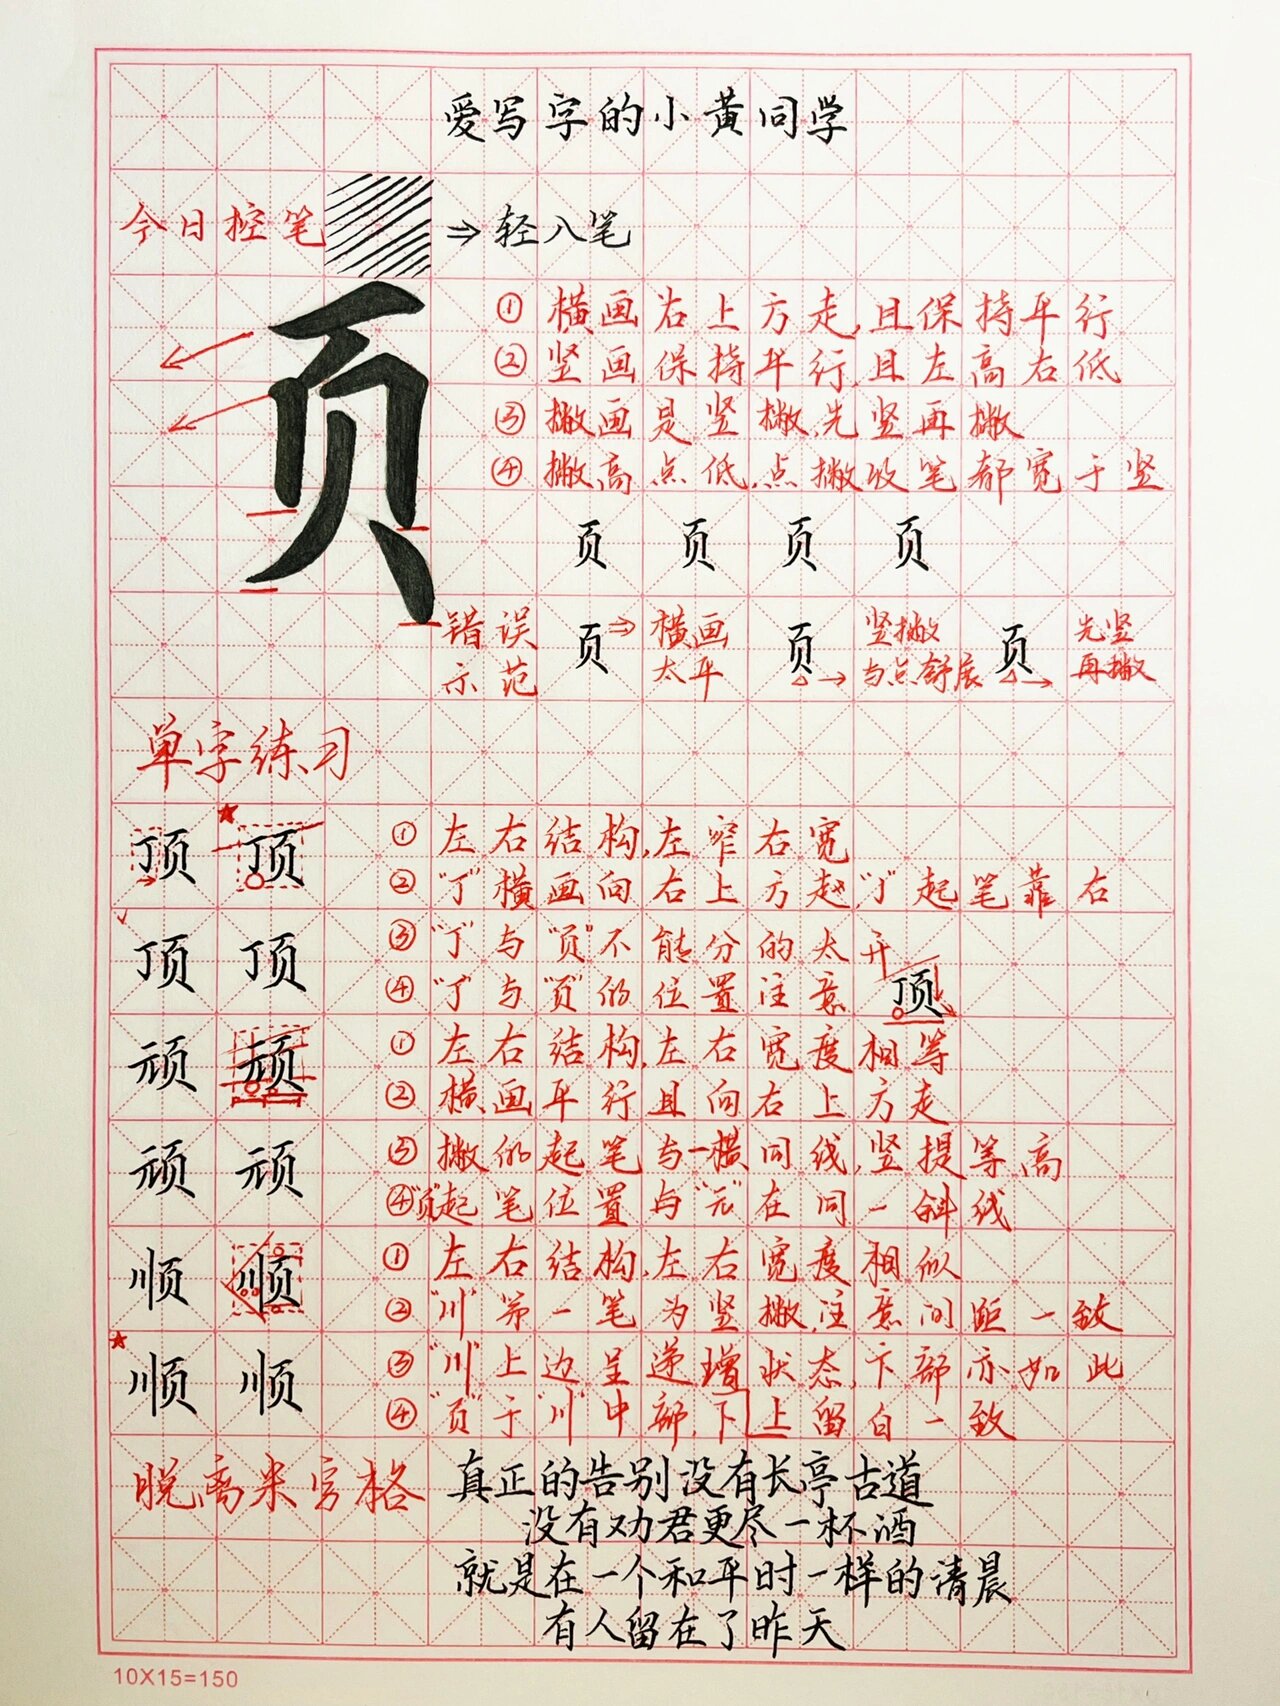 爱写字的小黄同学
今日控笔 ⇒轻入笔
页
①横画右上方走,且保持平行
②竖画保持平行,且左高右低
③撇画是竖撇,先竖再撇
④撇高点低,点撇收笔都宽于竖
页 页 页 页
错误示范 页⇒横画太平 页→竖撇与点舒展 页→先竖再撇
单字练习
顶 顶 ①左右结构,左窄右宽
②"丁"横画向右上方起,"亅"起笔靠右
顶 顶 ③"丁"与"页"不能分的太开
④"丁"与"页"的位置注意 顶
顽 顽 ①左右结构,左右宽度相等
②横画平行且向右上方走
顽 顽 ③撇的起笔与一横同线,竖提等高
④"页"起笔位置与"元"在同一斜线
顺 顺 ①左右结构,左右宽度相似
②"川"第一笔为竖撇,注意间距一致
顺 顺 ③"川"上边呈递增状态,下部亦如此
④"页"于"川"中部,下上留白一致
脱离米字格
真正的告别没有长亭古道
没有劝君更尽一杯酒
就是在一个和平时一样的清晨
有人留在了昨天
10X15=150